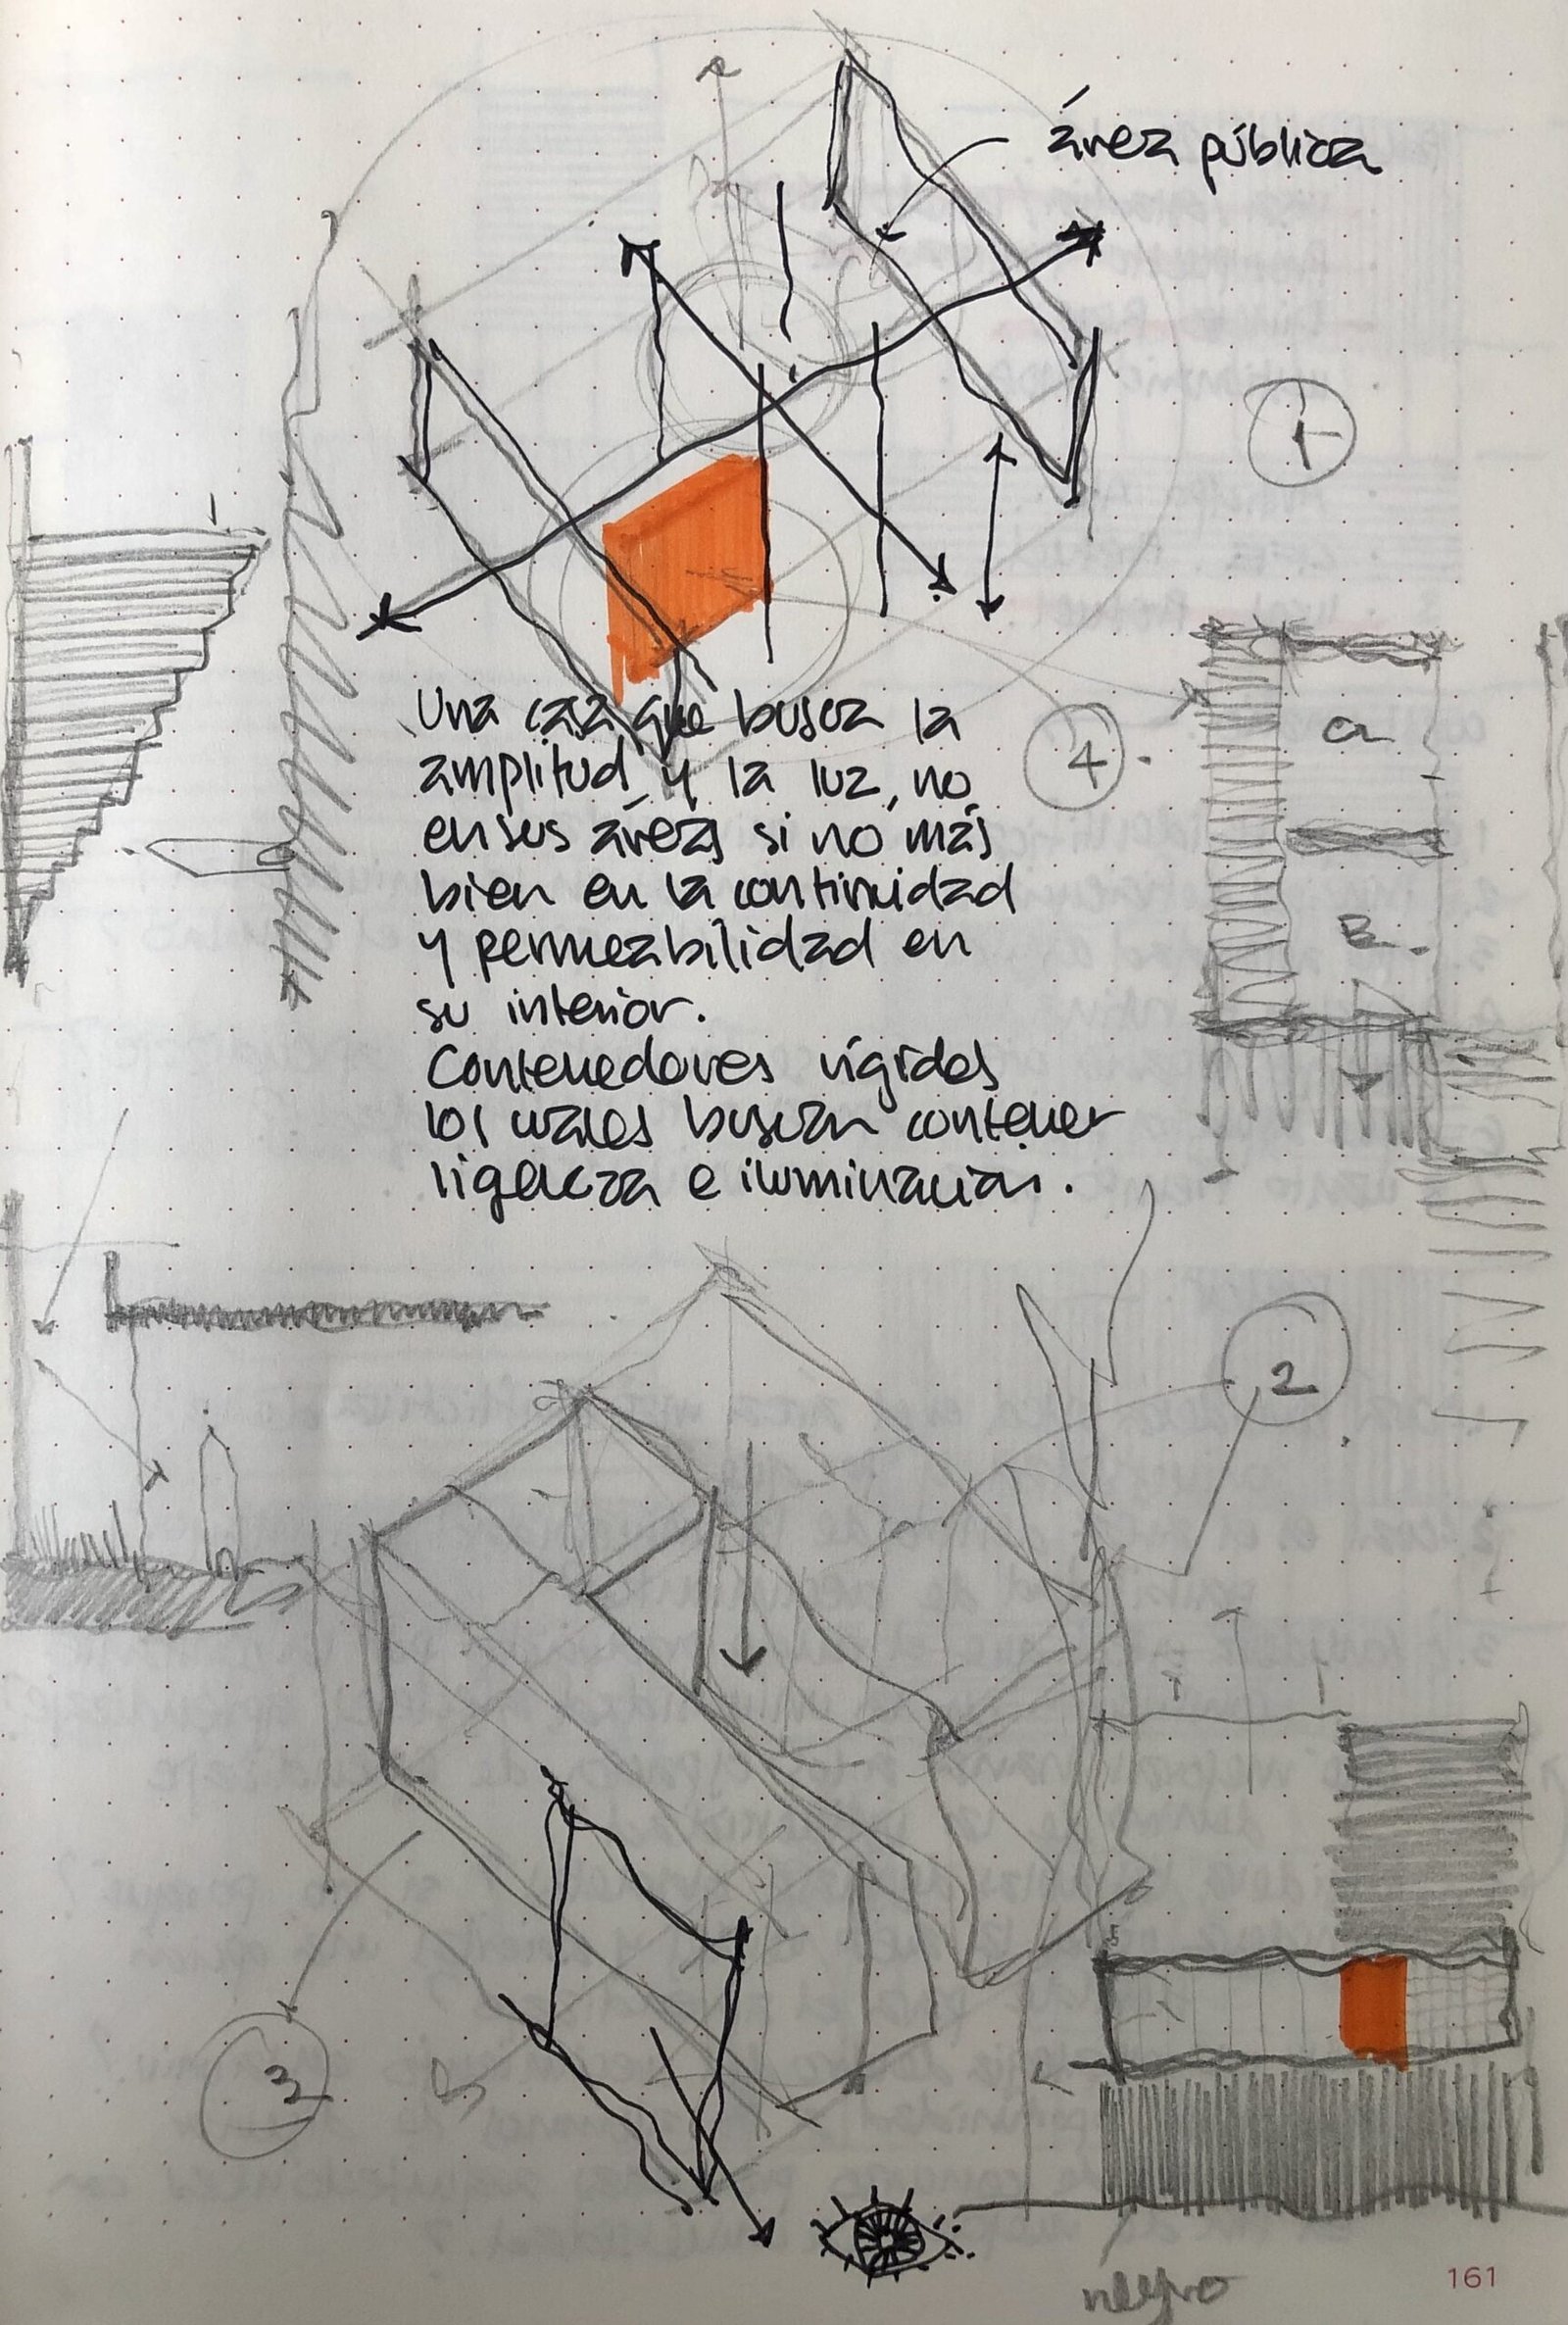 área pública
1
Una casa que busca la
amplitud y la luz, no
en sus áreas si no más
bien en la continuidad
y permeabilidad en
su interior.
Contenedores rígidos
los cuales buscan contener
ligereza e iluminación.
4
a
B.
2
3
negro
161